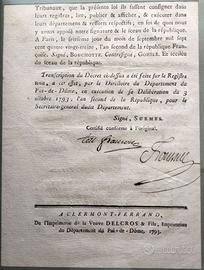 Tribunaux, que la présente loi ils fassent consigner dans
leurs registres, lire, publier & afficher, & exécuter dans
leurs départemens & ressorts respectifs; en foi de quoi nous
y avons apposé notre signature & le sceau de la république.
A Paris, le seizieme jour du mois de septembre mil sept
cent quatre-vingt-treize, l'an second de la République Françoise.
Signé, BOUCHOTTE. Contresigné, GOHIER. Et scellée
du sceau de la république.
Transcription du Décret ci-dessus a été faite sur le Registre
à ce destiné, par le Directoire du Département du
Puy-de-Dôme, en exécution de sa Délibération du 3
octobre 1793, l'an second de la République, pour le
Secrétaire-général dudit Département.
Signé,
Certifié conforme à l'original.
A CLERMONT-FERRAND,
De l'Imprimerie de la Veuve DELCROS & Fils, Imprimeurs
du Département du Puy-de-Dôme, 1793.